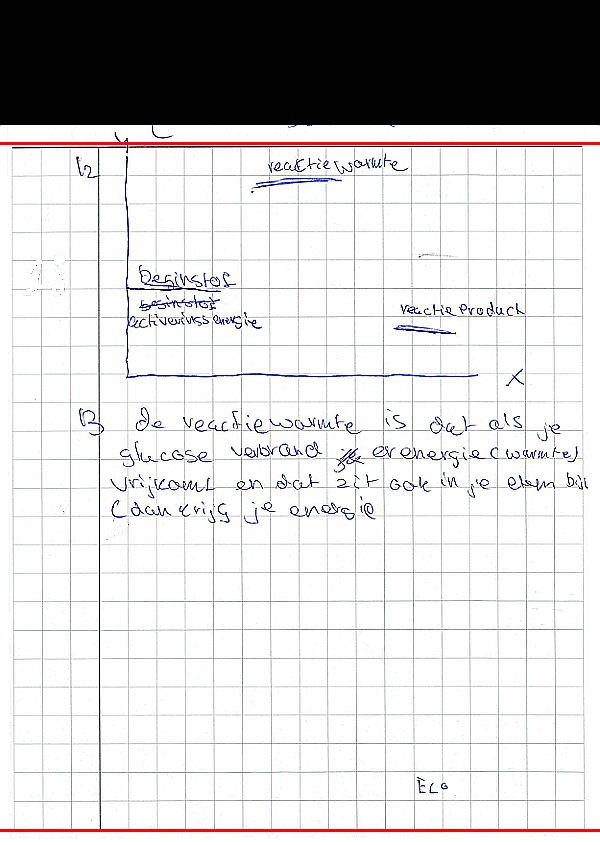 12
reactiewarmte
Beginstof
beginstof
activeringsenergie
reactieproduct
X
13 de reactiewarmte is dat als je
glucose verbrand er energie (warmte)
vrijkomt en dat zit ook in je eten bij
(dan krijg je energie